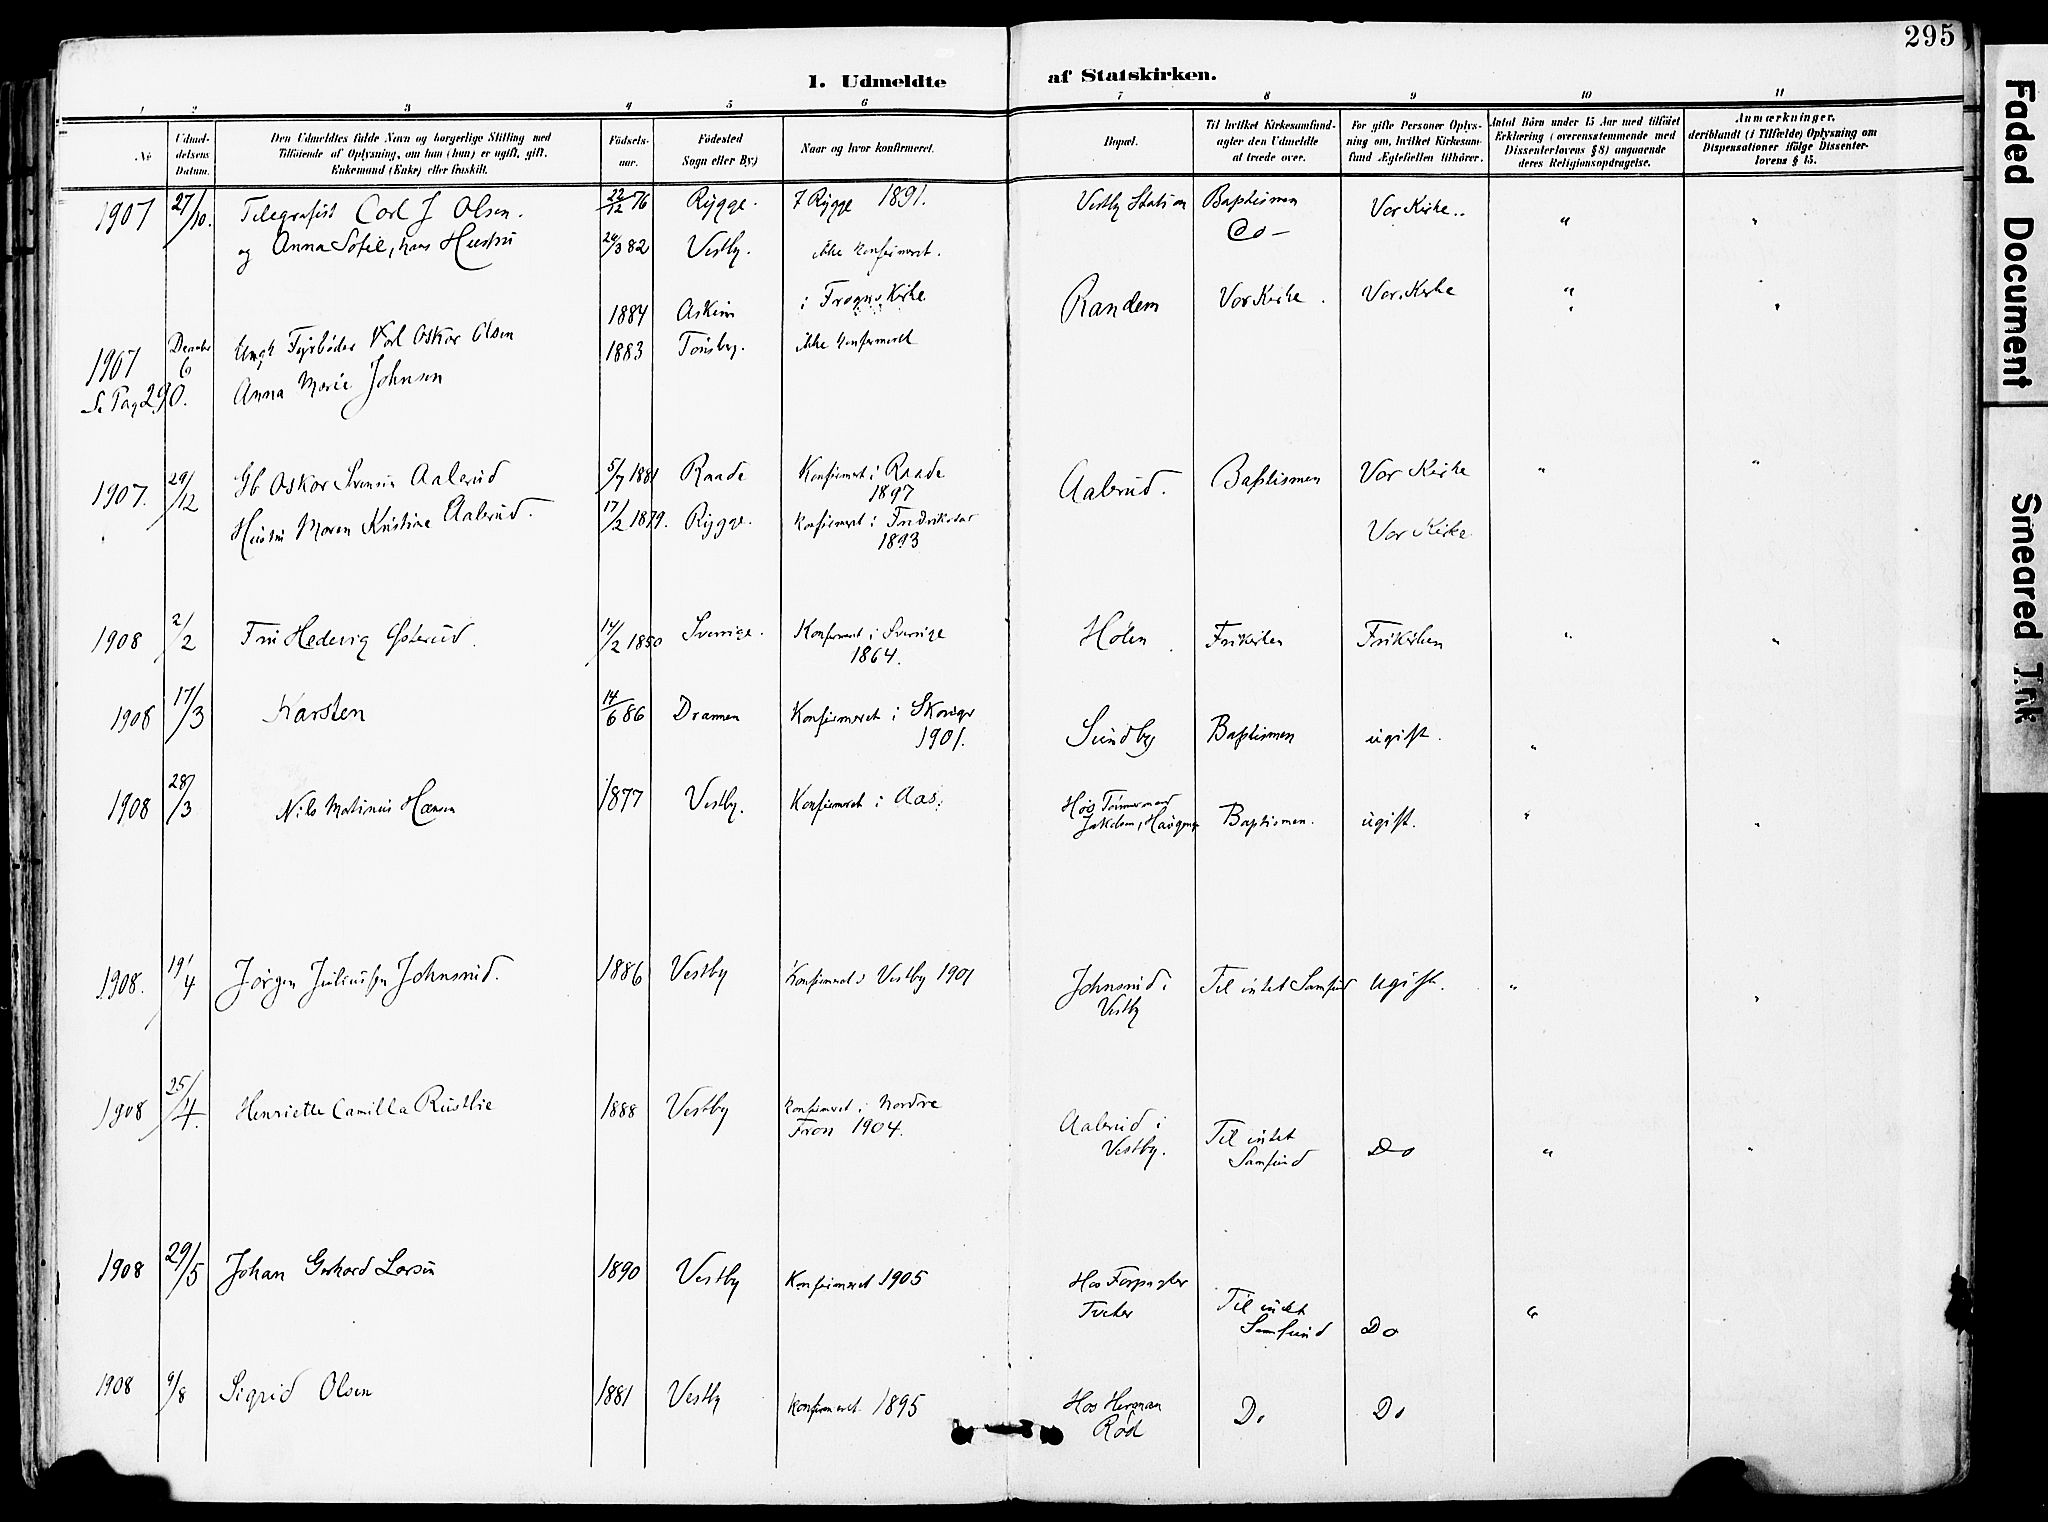 295
1. Udmeldte af Statskirken.
1 2 3 4 5 6 7 8 9 10 11
No
Udmeldelsens Datum.
Den Udmeldtes fulde Navn og borgerlige Stilling med
Tilföiende af Oplysning, om han (hun) er ugift, gift,
Enkemand (Enke) eller fraskilt.
Födselsaar.
Födested
Sogn eller By.)
Naar og hvor konfirmeret.
Bopæl.
Til hvilket Kirkesamfund-
agter den Udmeldte
at træde over.
For gifte Personer Oplys-
ning om, hvilket Kirkesam-
fund Ægtefællen tilhörer.
Antal Börn under 15 Aar med tilföiet
Erklæring (overensstemmende med
Dissenterlovens § 8) angaaende
deres Religionsopdragelse.
Anmærkninger,
deriblandt (i Tilfælde) Oplysning om
Dispensationer ifölge Dissenter-
lovens § 15.
1907 27/10. Telegrafist Carl J Olsen. 22/12 76 Rygge. I Rygge 1891. Vestby Station Baptismen Vor Kirke.. " "
og Anna Sofie, hans Hustru 24/3 82 Vestby. ikke konfirmeret. Do –
1884 Askim i Frogns Kirke Randem Vor Kirke. Vor Kirke " "
1907 December 6 Ungk Fyrbøder Karl Oskar Olsen 1883 Tønsberg. ikke konfirmeret
Se Pag 290. Anna Marie Johnsen
1907. 29/12 Gb Oskar Svensen Aalerud 5/7 1881 Raade Konfirmeret i Raade 1897 Aalerud. Baptismen Vor Kirke " "
Hustru Maren Kristine Aalerud. 17/2 1879. Rygge. konfirmeret i Fredrikstad 1893 Vor Kirke
1908 2/2 Fru Hedevig Østerud. 14/2 1850 Sverige. Konfirmeret i Sverige 1864. Hølen Frikirken Frikirken " "
1908 17/3 Karsten 14/6 86 Dramen Konfirmeret i Skoger 1901. Sundby Baptismen ugift. "
1908 28/3 Nils Martinius Hansen 1877 Vestby. Konfirmeret i Aas. Hos Tømmermand Jakobsen, Baptismen. ugift. " "
1908. 19/4 Jørgen Juliussen Johnsrud. 1886 Vestby Konfirmeret i Vestby 1901 Johnsrud i Vestby Til intet Samfund Ugift. " "
1908 25/4. Henriette Camilla Rustlie 1888 Vestby konfirmeret i Nordre Fron 1904. Aalerud i Vestby. Til intet Samfund Do " "
1908 29/5 Johan Gerhard Larsen 1890 Vestby Konfirmeret 1905 Hos Forpagter Tveter Til intet Samfund Do "
1908 9/8 Sigrid Olsen 1881 Vestby konfirmeret 1895 Hos Herman Rød Do Do
Faded Document
Smeared Ink